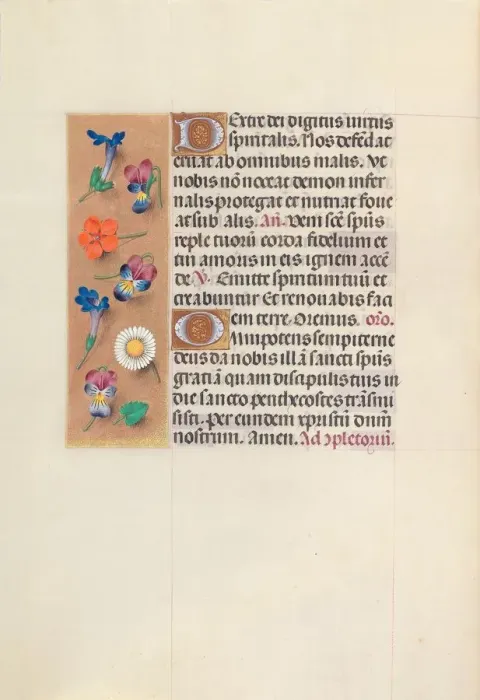 Dextre dei digitus uirtus
spiritalis. Nos defēdat
eruat ab omnibus malis. Vt
nobis nō noceat demon infer
nalis protegat et nutriat foue
at sub alis. Añ. Veni scē spūs
reple tuorū corda fidelium et
tui amoris in eis ignem accē
de. V. Emitte spiritum tuū et
creabuntur Et renouabis faci
em terre. Oremus. oro.
Omnipotens sempiterne
deus da nobis illā sancti spūs
gratiā quam discipulis tuis in
die sancto penthecostes trāsmi
sisti. Per eundem xpristū dnm̄
nostrum. Amen. Ad ɔpletoriū.